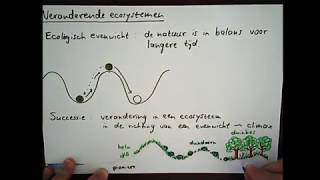 Veranderende ecosystemen
Ecologisch evenwicht : de natuur is in balans voor
langere tijd.
Successie : verandering in een ecosysteem
in de richting van een evenwicht – climax
duinbos
duindoorn
helm
gras
pionier